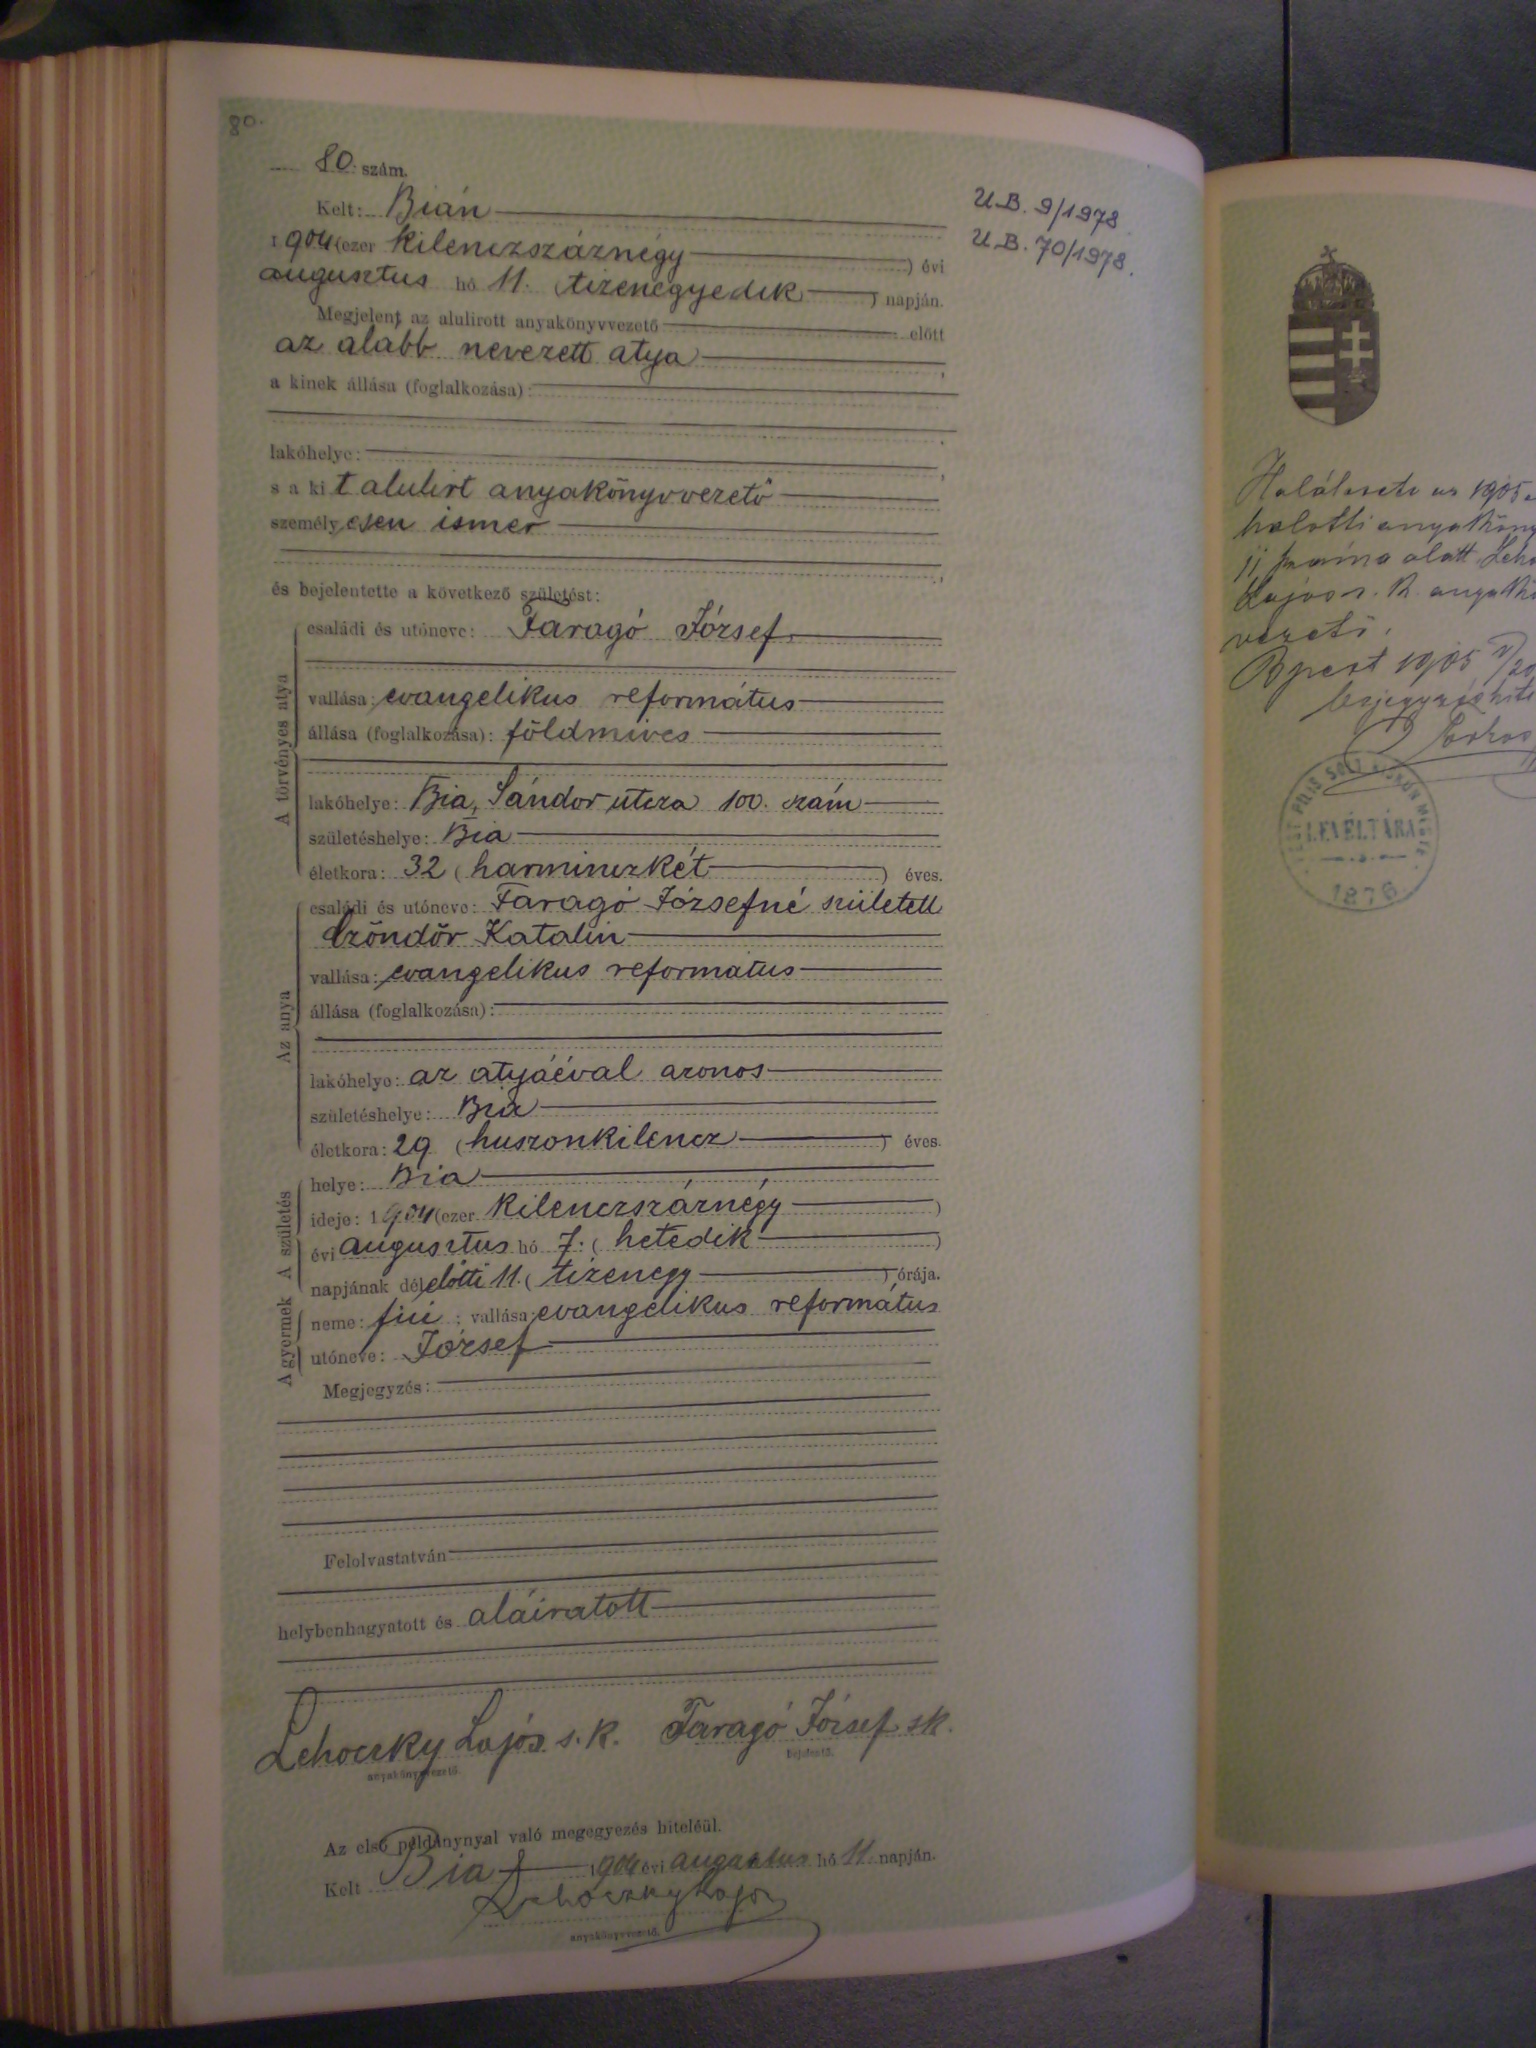 80.
80. szám.
Kelt: Bián
1904 (ezer kilenczszáznégy) évi
augusztus hó 11. (tizenegyedik) napján.
Megjelent az alulirott anyakönyvvezető előtt
az alabb nevezett atya,
a kinek állása (foglalkozása):
lakóhelye:
s a kit alulirt anyakönyvvezető
személyesen ismer
és bejelentette a következő születést:
A törvényes atya
családi és utóneve: Faragó József
vallása: evangelikus református
állása (foglalkozása): földmives
lakóhelye: Bia, Sándor utcza 100. szám
születéshelye: Bia
életkora: 32 (harminczkét) éves.
Az anya
családi és utóneve: Faragó Józsefné született
Czöndör Katalin
vallása: evangelikus református
állása (foglalkozása):
lakóhelye: az atyáéval azonos
születéshelye: Bia
életkora: 29 (huszonkilencz) éves.
A születés
helye: Bia
ideje: 1904 (ezer kilenczszáznégy)
évi augusztus hó 7. (hetedik)
napjának délelőtti 11. (tizenegy) órája.
A gyermek
neme: fiú; vallása: evangelikus református
utóneve: József
Megjegyzés:
Felolvastatván
helybenhagyatott és aláiratott
Lehoczky Lajos s.k. Faragó József sk.
anyakönyvvezető. bejelentő.
Az első példánynyal való megegyezés hiteléül.
Kelt Bia 1904 évi augusztus hó 11 napján.
Lehoczky Lajos
anyakönyvvezető.
U.B. 9/1978
U.B. 70/1978.
halotti
alatt
vezető.
Bpest 1905
LEVÉLTÁRA
1876